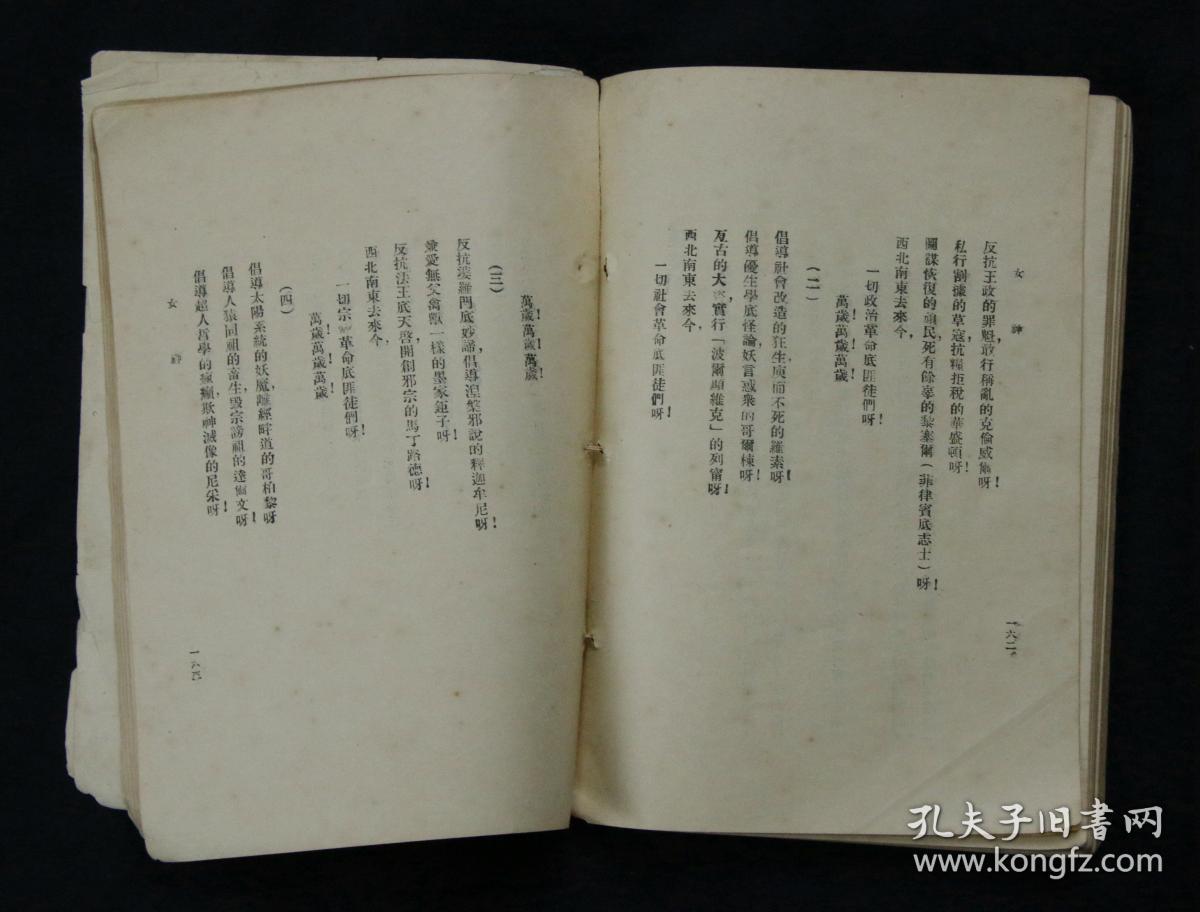 女神
反抗王政的罪魁,敢行稱亂的克倫威爾呀!
私行割據的草寇,抗糧拒稅的華盛頓呀!
圖謀恢復的頑民,死有餘辜的黎塞爾(菲律賓底志士)呀!
西北南東去來今,
一切政治革命底匪徒們呀!
萬歲!萬歲!萬歲!
(二)
倡導社會改造的狂生,庾而不死的羅素呀!
倡導優生學底怪論,妖言惑衆的哥爾棟呀!
亙古的大,實行「波爾顯維克」的列甯呀!
西北南東去來今,
一切社會革命底匪徒們呀!
一六二
萬歲!萬歲!萬歲!
(三)
反抗婆羅門底妙諦,倡導涅槃邪說的釋迦牟尼呀!
兼愛無父,禽獸一樣的墨家鉅子呀!
反抗法王底天啓,開創邪宗的馬丁路德呀!
西北南東去來今,
一切宗革命底匪徒們呀!
萬歲!萬歲!萬歲!
(四)
倡導太陽系統的妖魔,離經畔道的哥柏黎呀!
倡導人猿同祖的畜生,毀宗謗祖的達爾文呀!
倡導超人哲學的瘋癲,欺神滅像的尼采呀!
女神
一六
孔夫子旧書网
www.kongfz.com